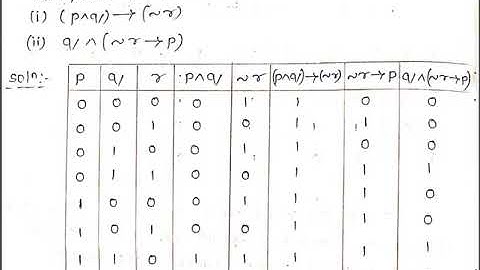 (i) (p∧q) → (~r)
(ii) q ∧ (~r → p)
Soln:- p q r p∧q ~r (p∧q)→(~r) ~r→p q∧(~r→p)
0 0 0 0 1 1 0 0
0 0 1 0 0 1 1 0
0 1 0 0 1 1 0 0
0 1 1 0 0 1 1 1
1 0 0 0 1 1 1 0
1 0 1 0 0 1 1 0
1 1 0 1 1 1 1 1